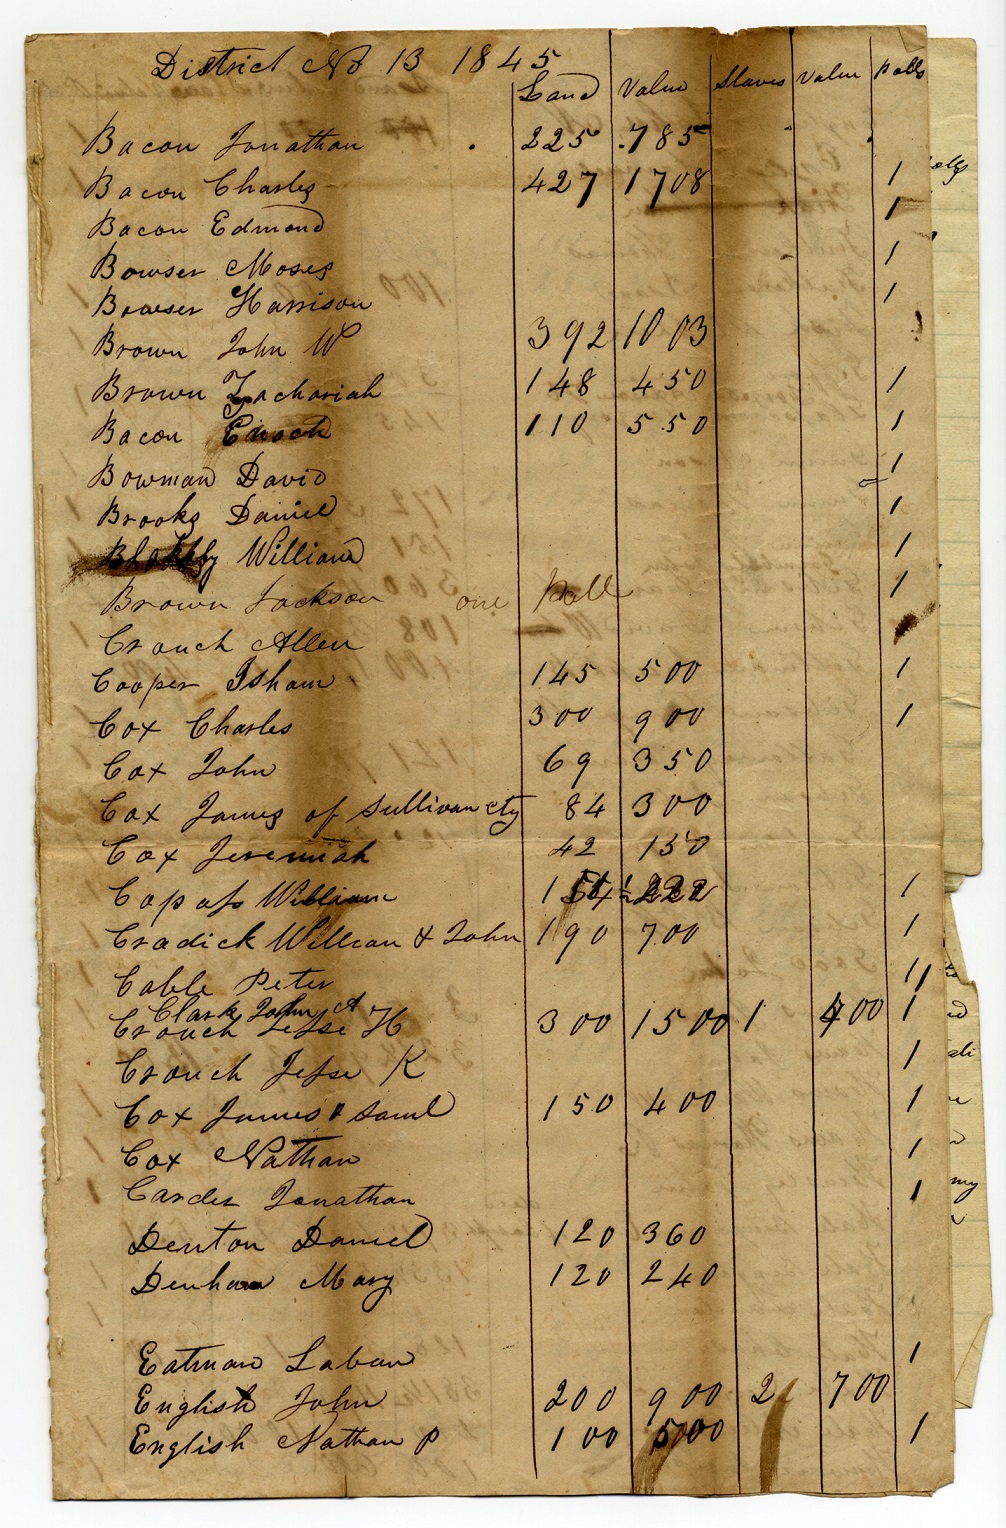 District No 13 1845
Land Value Slaves Value Polls
Bacon Jonathan 225 785
Bacon Charles 427 1708 1
Bacon Edmond 1
Bowser Moses 1
Bowser Harrison 1
Brown John W 392 1003
Brown Zachariah 148 450 1
Bacon Enoch 110 550 1
Bowman David 1
Brooks Daniel 1
William 1
Brown Jackson one Poll 1
Crouch Allen
Cooper Isham 145 500 1
Cox Charles 300 900 1
Cox John 69 350
Cox James of Sullivan cty 84 300
Cox Jeremiah 42 150
Copass William 154 1/2 222 1
Cradick William & John 190 700 1
Cable Peter 1 1
Clark John A
Crouch Jesse H 300 1500 1 400 1
Crouch Jesse K 1
Cox James & Saml 150 400 1
Cox Nathan 1
Carder Jonathan 1
Denton Daniel 120 360
Denham Mary 120 240
Eatman Laban 1
English John 200 900 2 700
English Nathan P 100 500 1